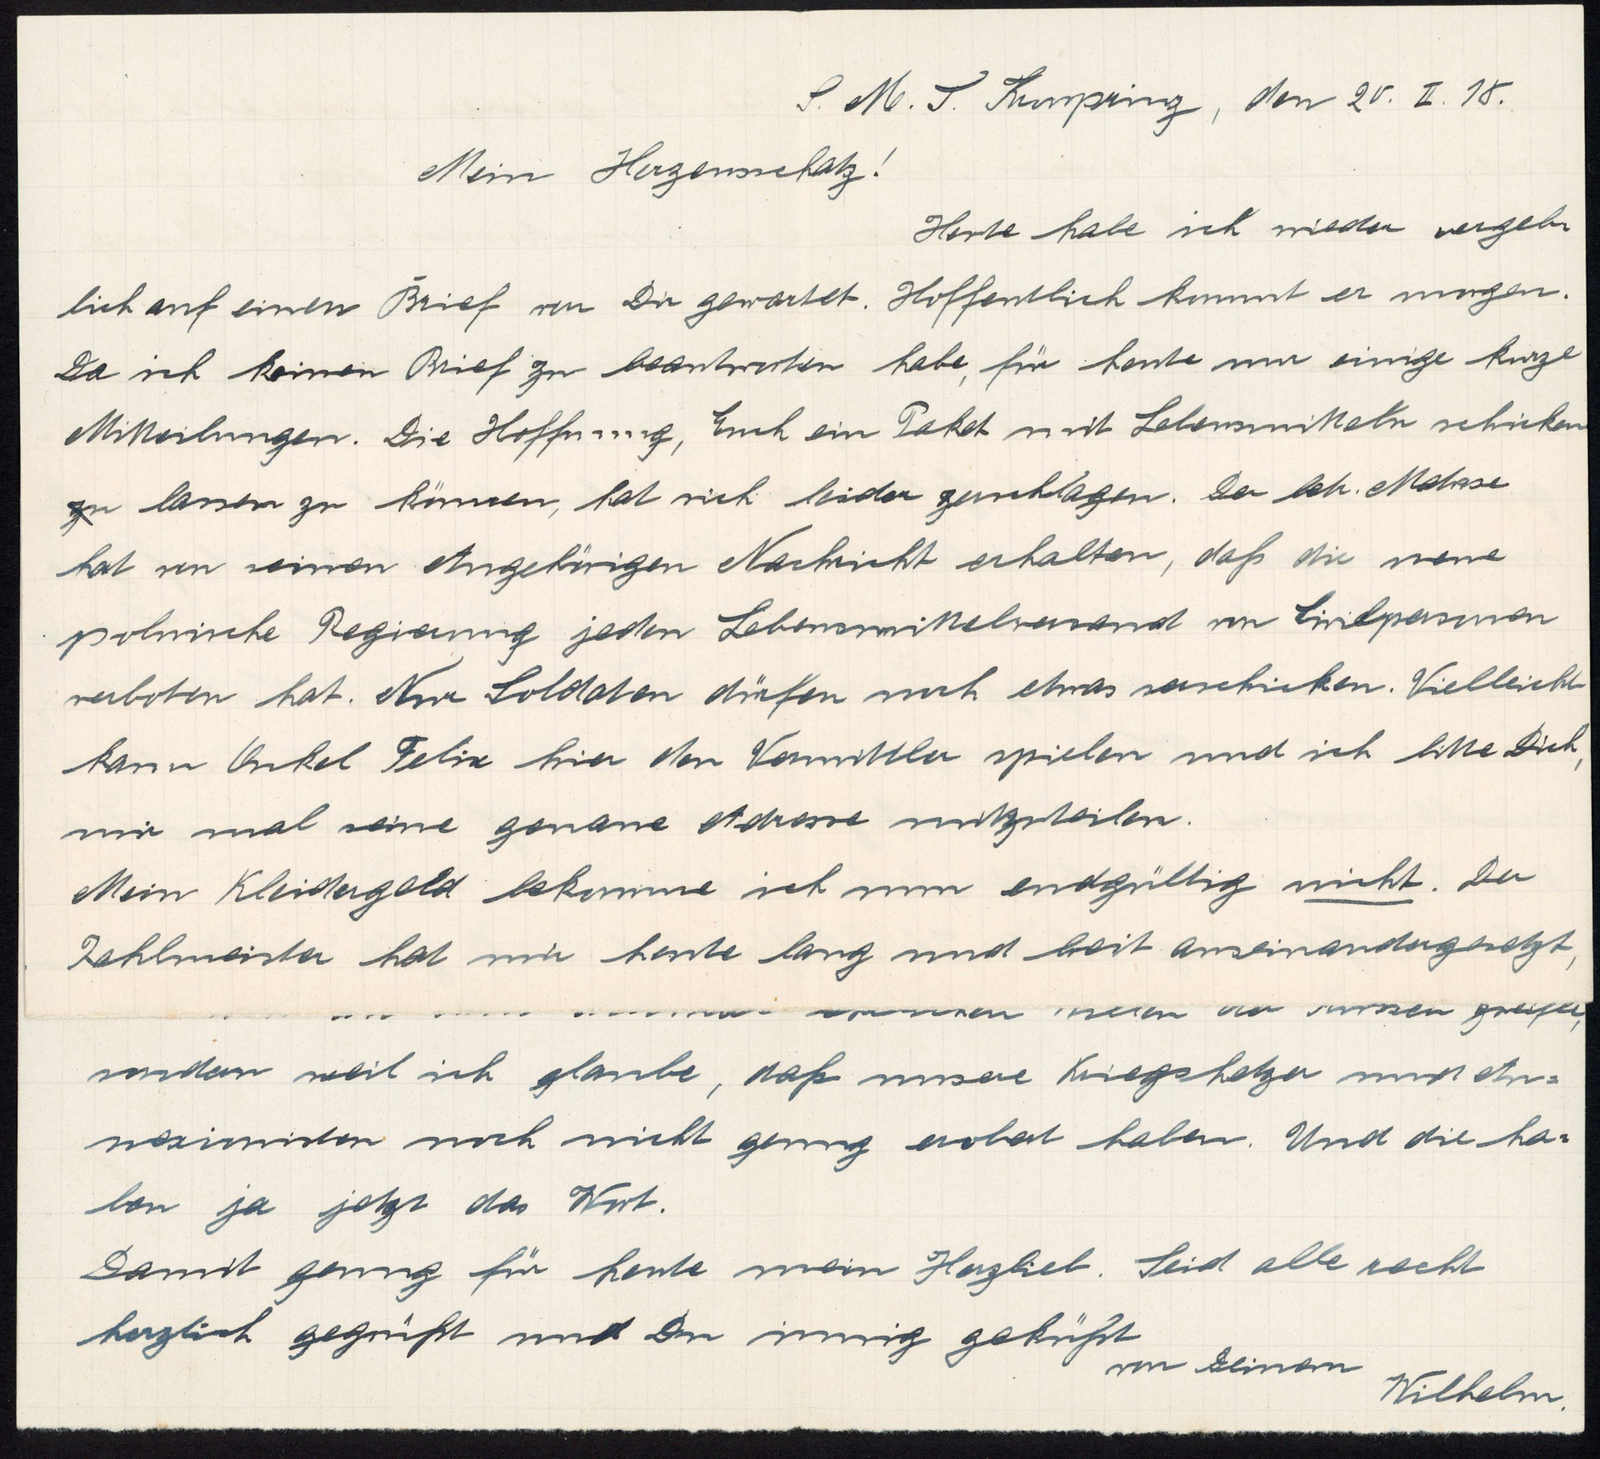 S. M. S. Kronprinz, den 20. II. 18.
Mein Herzensschatz!
Heute habe ich wieder vergeb-
lich auf einen Brief von Dir gewartet. Hoffentlich kommt er morgen.
Da ich keinen Brief zu beantworten habe, für heute nur einige kurze
Mitteilungen. Die Hoffnung, Euch ein Paket mit Lebensmitteln schicken
zu lassen zu können, hat sich leider zerschlagen. Der betr. Matrose
hat von seinen Angehörigen Nachricht erhalten, daß die neue
polnische Regierung jeden Lebensmittelversand von Civilpersonen
verboten hat. Nur Soldaten dürfen noch etwas verschicken. Vielleicht
kann Onkel Felix hier den Vermittler spielen und ich bitte Dich,
mir mal seine genaue Adresse mitzuteilen.
Mein Kleidergeld bekomme ich nun endgültig nicht. Der
Zahlmeister hat mir heute lang und breit auseinandergesetzt,
sondern weil ich glaube, daß unsere Kriegshetzer und An=
nexionisten noch nicht genug erobert haben. Und die ha=
ben ja jetzt das Wort.
Damit genug für heute mein Herzlieb. Seid alle recht
herzlich gegrüßt und Du innig geküßt
von Deinem
Wilhelm.